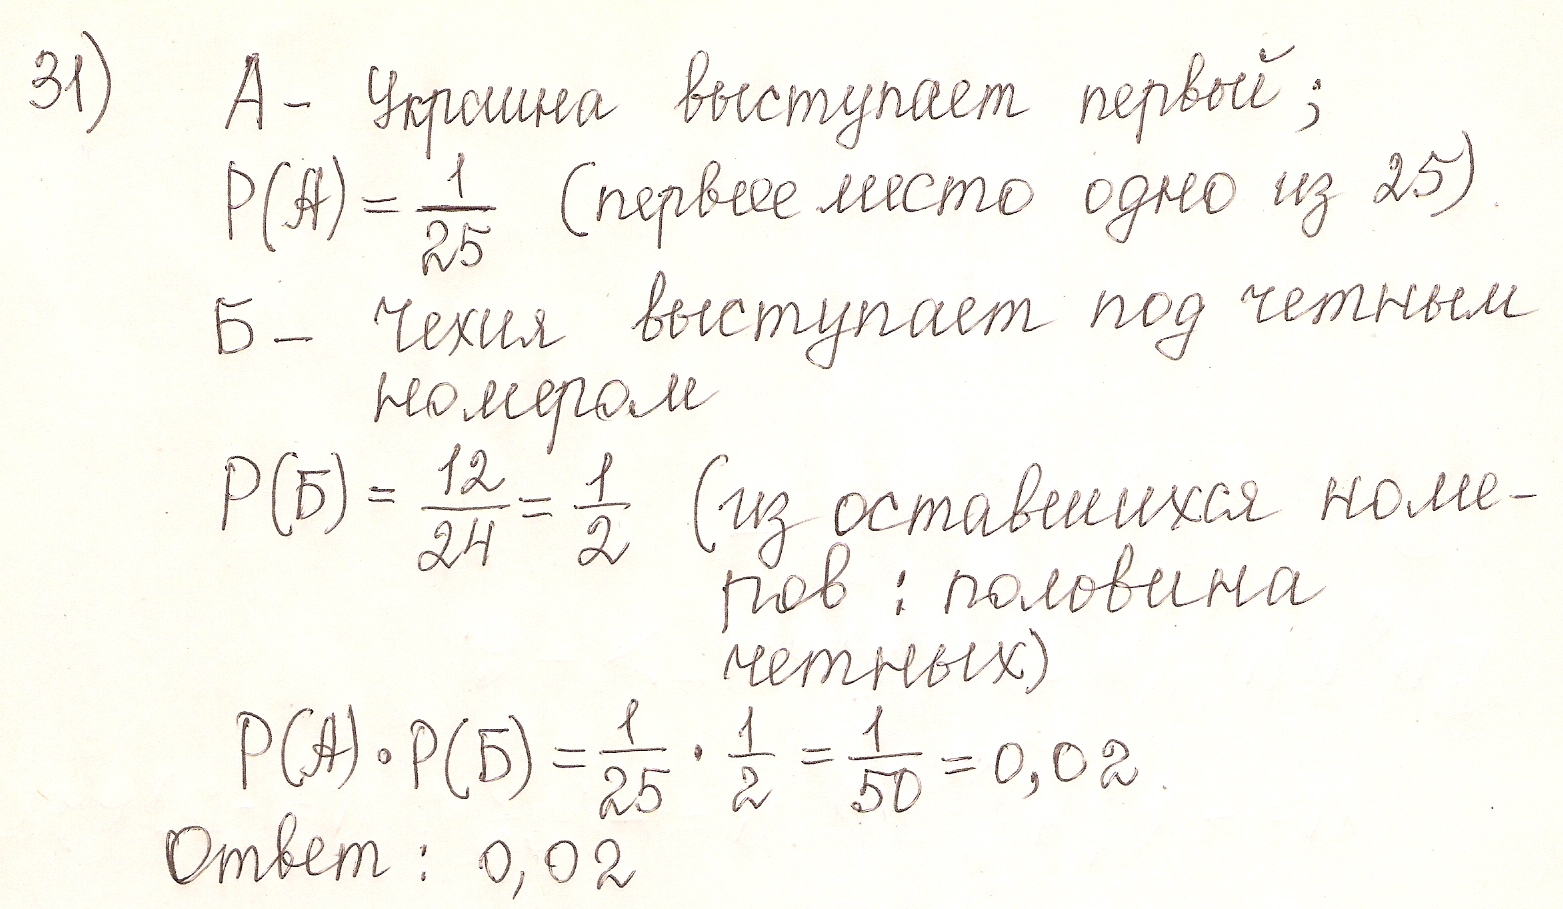 31) А - Украина выступает первой;
P(А) = 1/25 (первое место одно из 25).
Б - Чехия выступает под четным
номером
P(Б) = 12/24 = 1/2 (из оставшихся номе-
ров : половина
четных)
P(А) · P(Б) = 1/25 · 1/2 = 1/50 = 0,02.
Ответ : 0,02